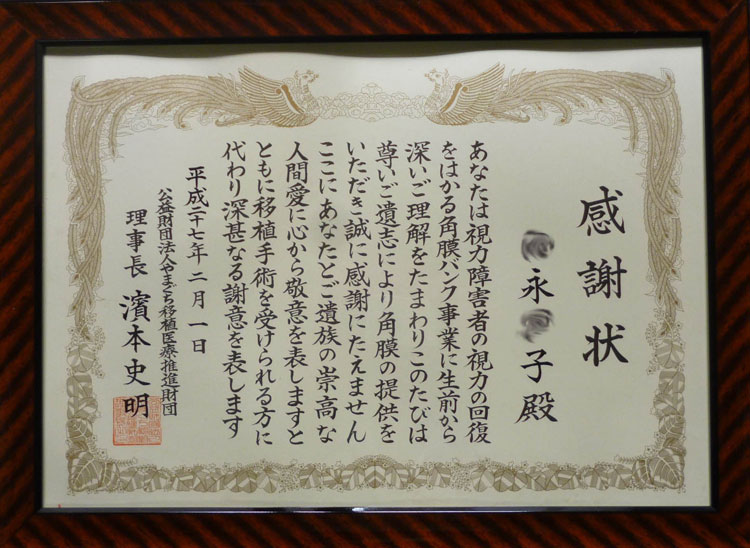 感謝状
永 子殿
あなたは視力障害者の視力の回復
をはかる角膜バンク事業に生前から
深いご理解をたまわりこのたびは
尊いご遺志により角膜の提供を
いただき誠に感謝にたえません
ここにあなたとご遺族の崇高な
人間愛に心から敬意を表しますと
ともに移植手術を受けられる方に
代わり深甚なる謝意を表します
平成二十七年二月一日
公益財団法人やまぐち移植医療推進財団
理事長 濱本史明